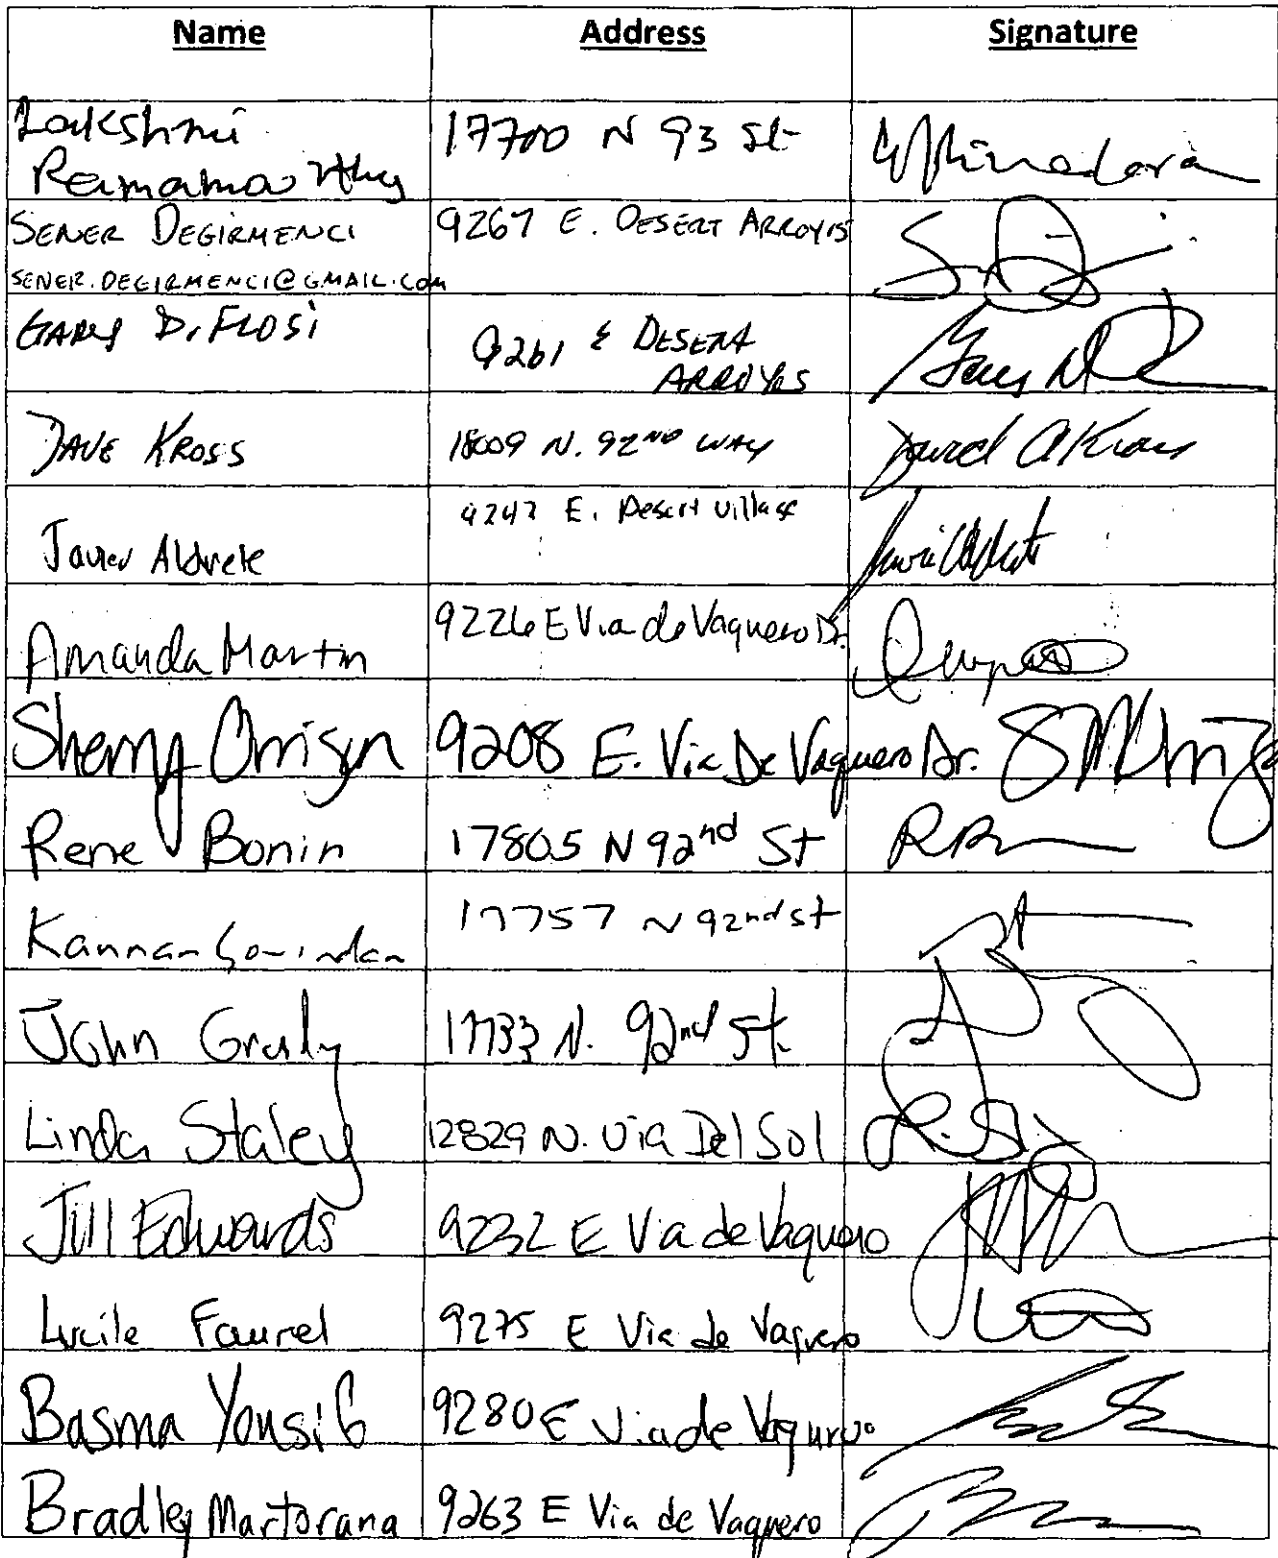 Name Address Signature
Lakshmi 17700 N 93 St
Ramamoorthy
SENER DEGIRMENCI 9267 E. DESERT ARROYOS
SENER.DEGIRMENCI@GMAIL.COM
GARY DiFLOSI 9261 E DESERT
ARROYOS
DAVE KROSS 18009 N. 92ND WAY David A Kross
Javier Aldrete 9247 E. Desert Village
Amanda Martin 9226 E Via de Vaquero Dr.
Sherry Orrison 9208 E. Via De Vaquero Dr.
Rene Bonin 17805 N 92nd St
Kannan Govindan 17757 N 92nd st
John Graly 17733 N. 92nd St.
Linda Staley 12829 N. Via Del Sol
Jill Edwards 9232 E Via de Vaquero
Lucile Faurel 9275 E Via de Vaquero
Basma Yousif 9280 E Via de Vaquero
Bradley Martorana 9263 E Via de Vaquero